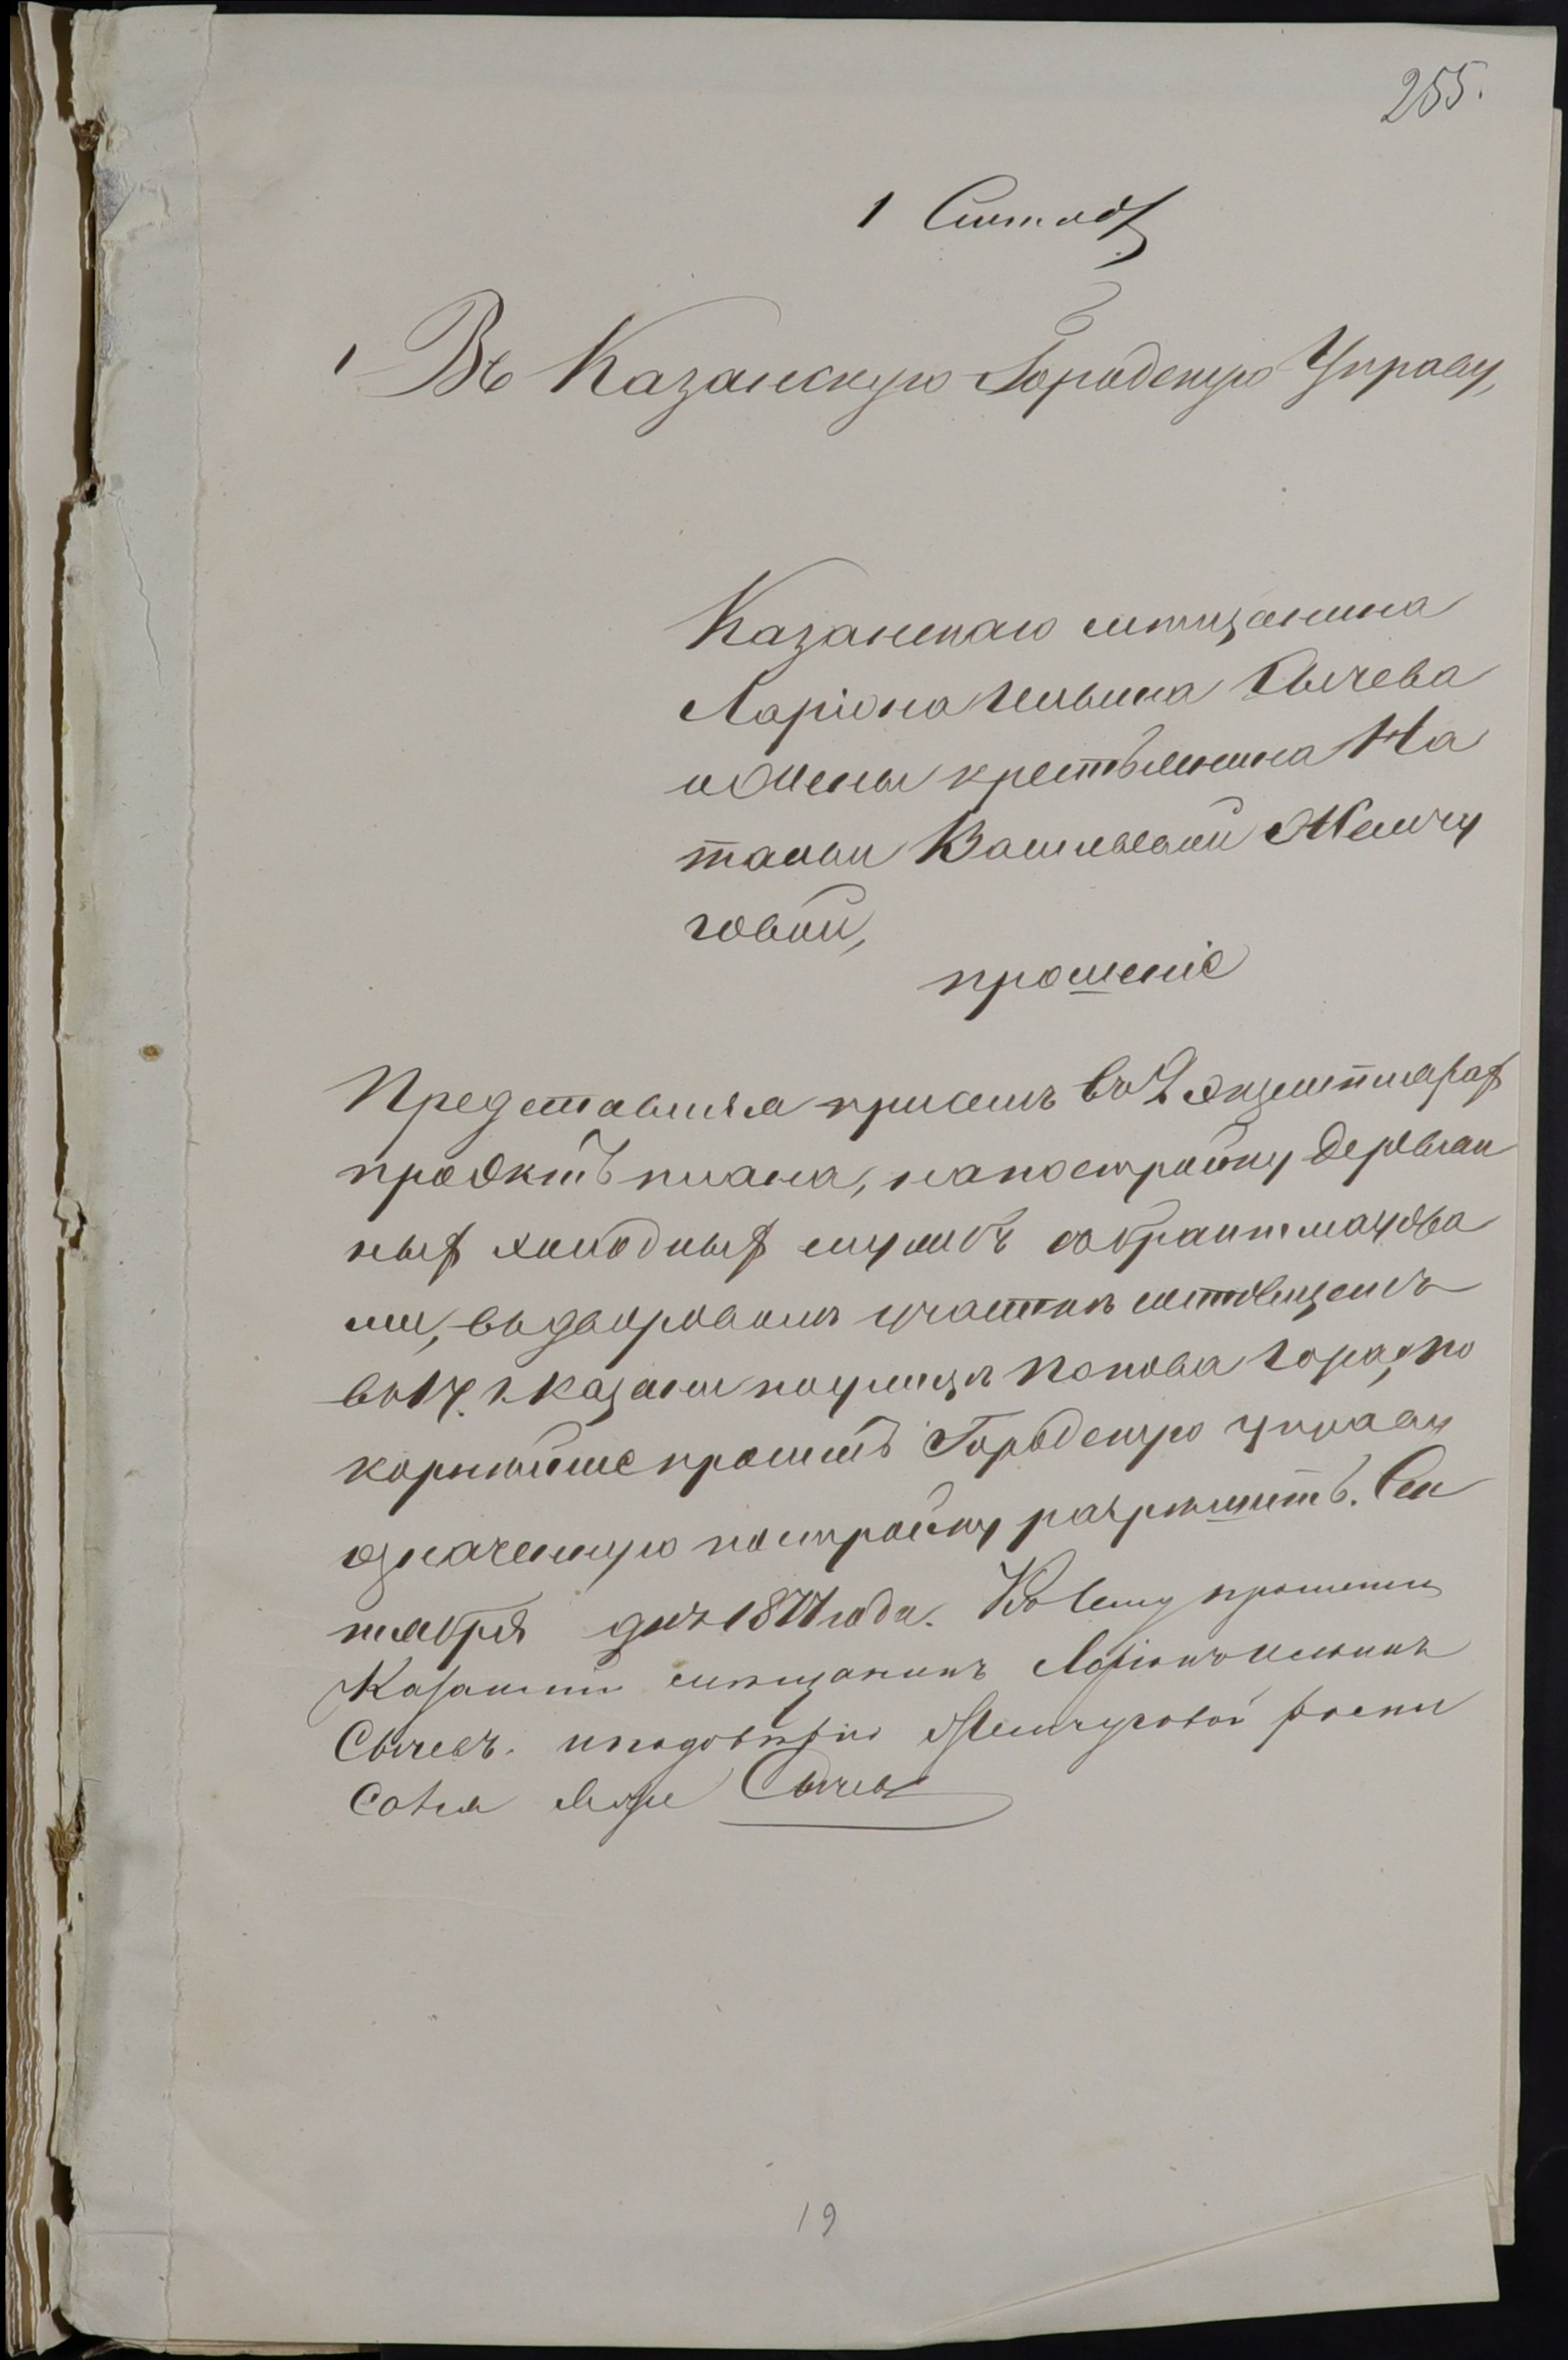 255.
1 Сентября
Въ Казанскую Городскую Управу,
Казанскаго мѣщанина
Ларіона Ильина Сычева
и жены крестьянина На
тальи Васильевой Жемчу
говой,
прошеніе
Представляя присемъ въ 2 экземплярах
проэктъ плана, на постройку деревян
ных холодных службъ с брантмауэра
ми, въ дворовомъ участкѣ состоящемъ
въ 1 ч. г. Казани по улицѣ Попова Гора, по
корнѣйше просимъ Городскую управу
означенную постройку разрѣшить. Сен
тября дня 1877 года. Къ сему прошенію
Казанскій мѣщанинъ Ларіонъ Ильинъ
Сычевъ. и по довѣрію Жемчуговой
Сычевъ
19